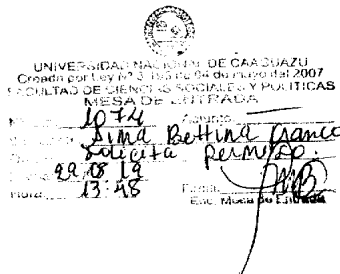 UNIVERSIDAD NACIONAL DE CAAGUAZU
Creada por Ley Nº 3.198 de 04 de mayo del 2007
FACULTAD DE CIENCIAS SOCIALES Y POLITICAS
MESA DE ENTRADA
1074
Bettina Franco
Solicita permiso.
29 08 19
Hora 13:48 Firma
Enc. Mesa de Entrada